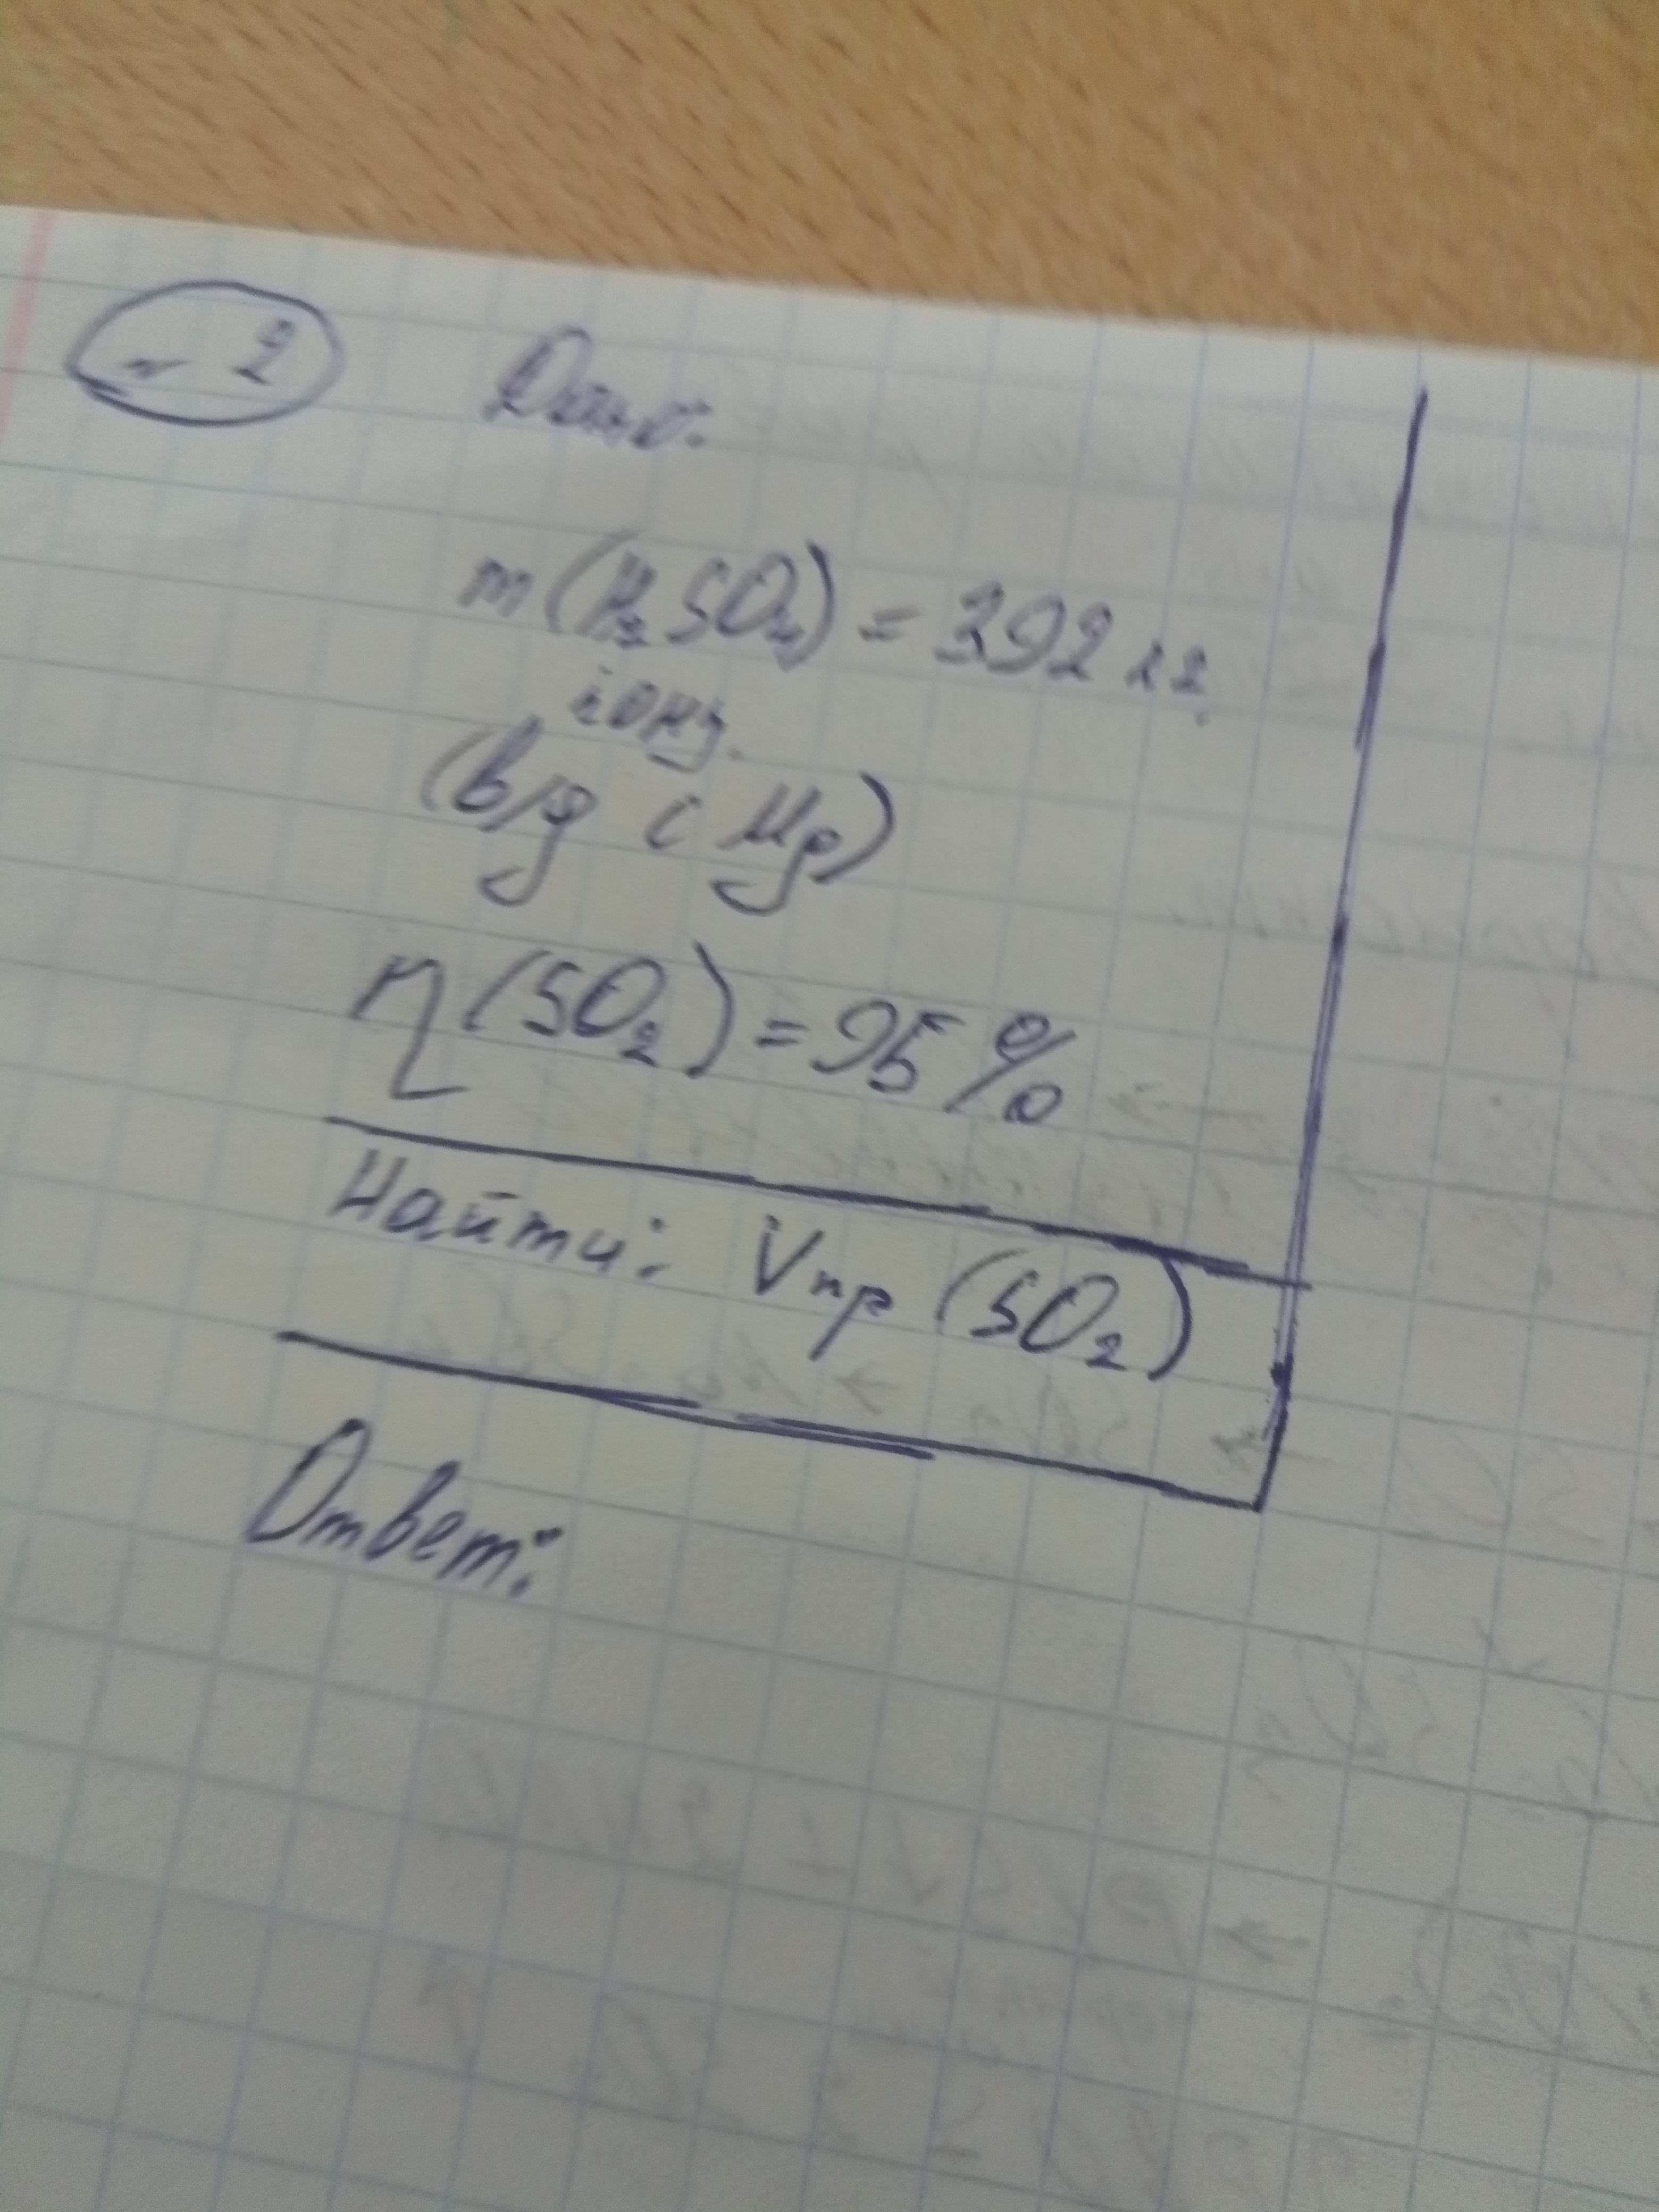 № 2 Дано:
m(H₂SO₄) = 392 г.
конц.
(в/д с Hg)
η(SO₂) = 95%
Найти: Vпр (SO₂)
Ответ: